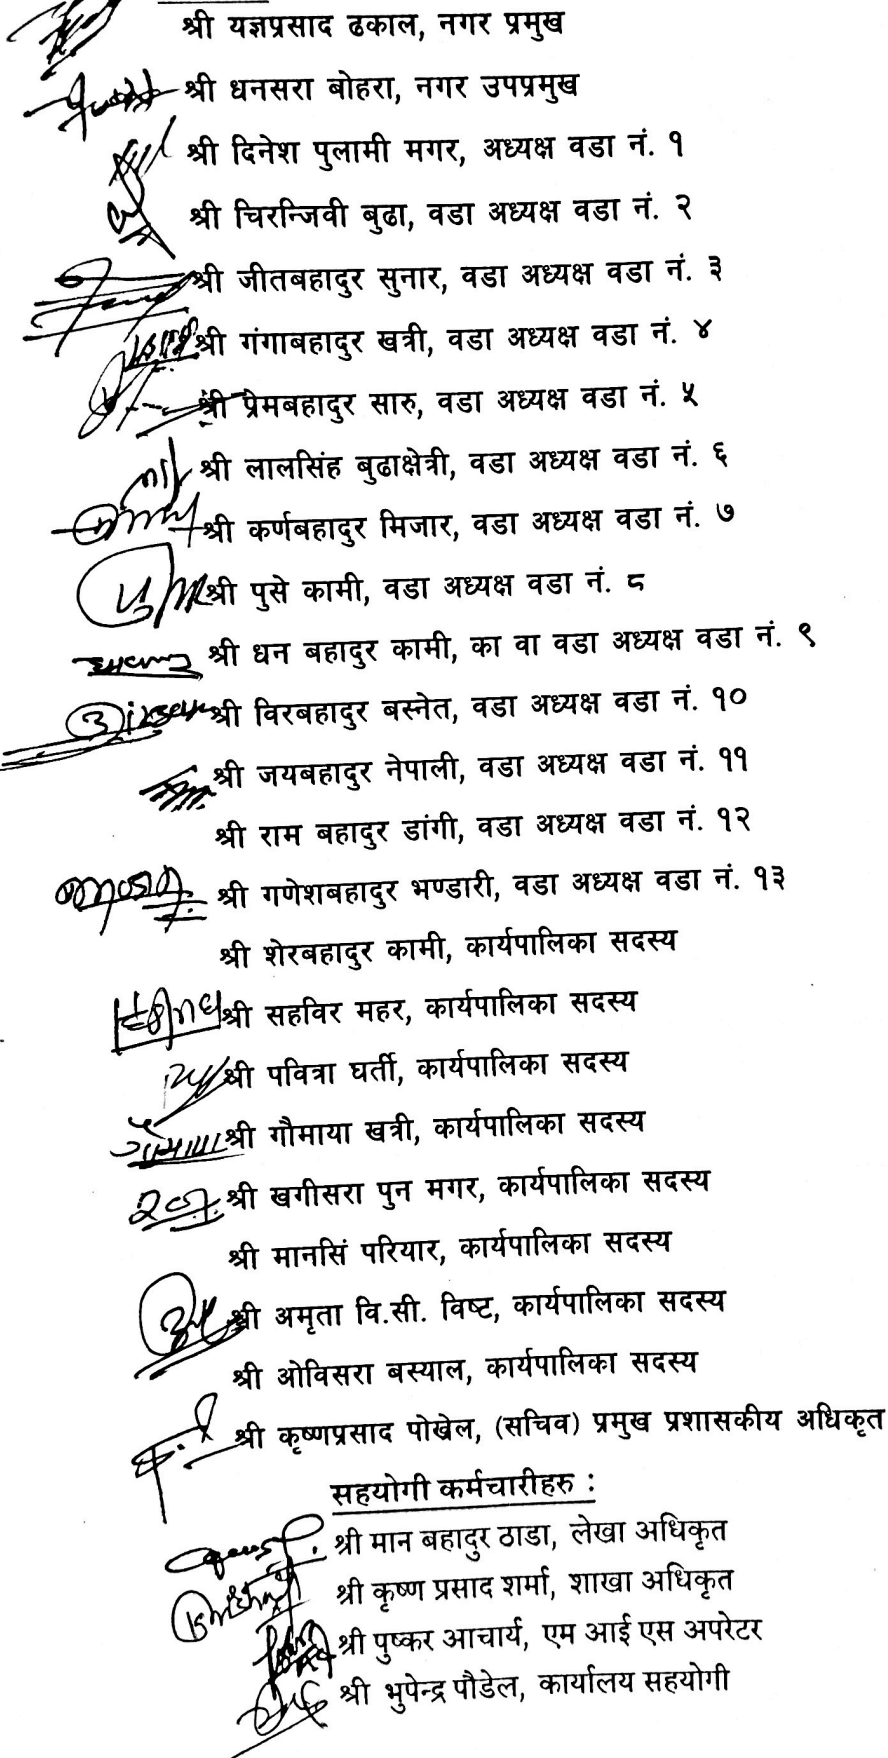 श्री यज्ञप्रसाद ढकाल, नगर प्रमुख
श्री धनसरा बोहरा, नगर उपप्रमुख
श्री दिनेश पुलामी मगर, अध्यक्ष वडा नं. १
श्री चिरन्जिवी बुढा, वडा अध्यक्ष वडा नं. २
श्री जीतबहादुर सुनार, वडा अध्यक्ष वडा नं. ३
श्री गंगाबहादुर खत्री, वडा अध्यक्ष वडा नं. ४
श्री प्रेमबहादुर सारु, वडा अध्यक्ष वडा नं. ५
श्री लालसिंह बुढाक्षेत्री, वडा अध्यक्ष वडा नं. ६
श्री कर्णबहादुर मिजार, वडा अध्यक्ष वडा नं. ७
श्री पुसे कामी, वडा अध्यक्ष वडा नं. ८
श्री धन बहादुर कामी, का वा वडा अध्यक्ष वडा नं. ९
श्री विरबहादुर बस्नेत, वडा अध्यक्ष वडा नं. १०
श्री जयबहादुर नेपाली, वडा अध्यक्ष वडा नं. ११
श्री राम बहादुर डांगी, वडा अध्यक्ष वडा नं. १२
श्री गणेशबहादुर भण्डारी, वडा अध्यक्ष वडा नं. १३
श्री शेरबहादुर कामी, कार्यपालिका सदस्य
श्री सहविर महर, कार्यपालिका सदस्य
श्री पवित्रा घर्ती, कार्यपालिका सदस्य
श्री गौमाया खत्री, कार्यपालिका सदस्य
श्री खगीसरा पुन मगर, कार्यपालिका सदस्य
श्री मानसिं परियार, कार्यपालिका सदस्य
श्री अमृता वि.सी. विष्ट, कार्यपालिका सदस्य
श्री ओविसरा बस्याल, कार्यपालिका सदस्य
श्री कृष्णप्रसाद पोख्रेल, (सचिव) प्रमुख प्रशासकीय अधिकृत
सहयोगी कर्मचारीहरु :
श्री मान बहादुर ठाडा, लेखा अधिकृत
श्री कृष्ण प्रसाद शर्मा, शाखा अधिकृत
श्री पुष्कर आचार्य, एम आई एस अपरेटर
श्री भुपेन्द्र पौडेल, कार्यालय सहयोगी